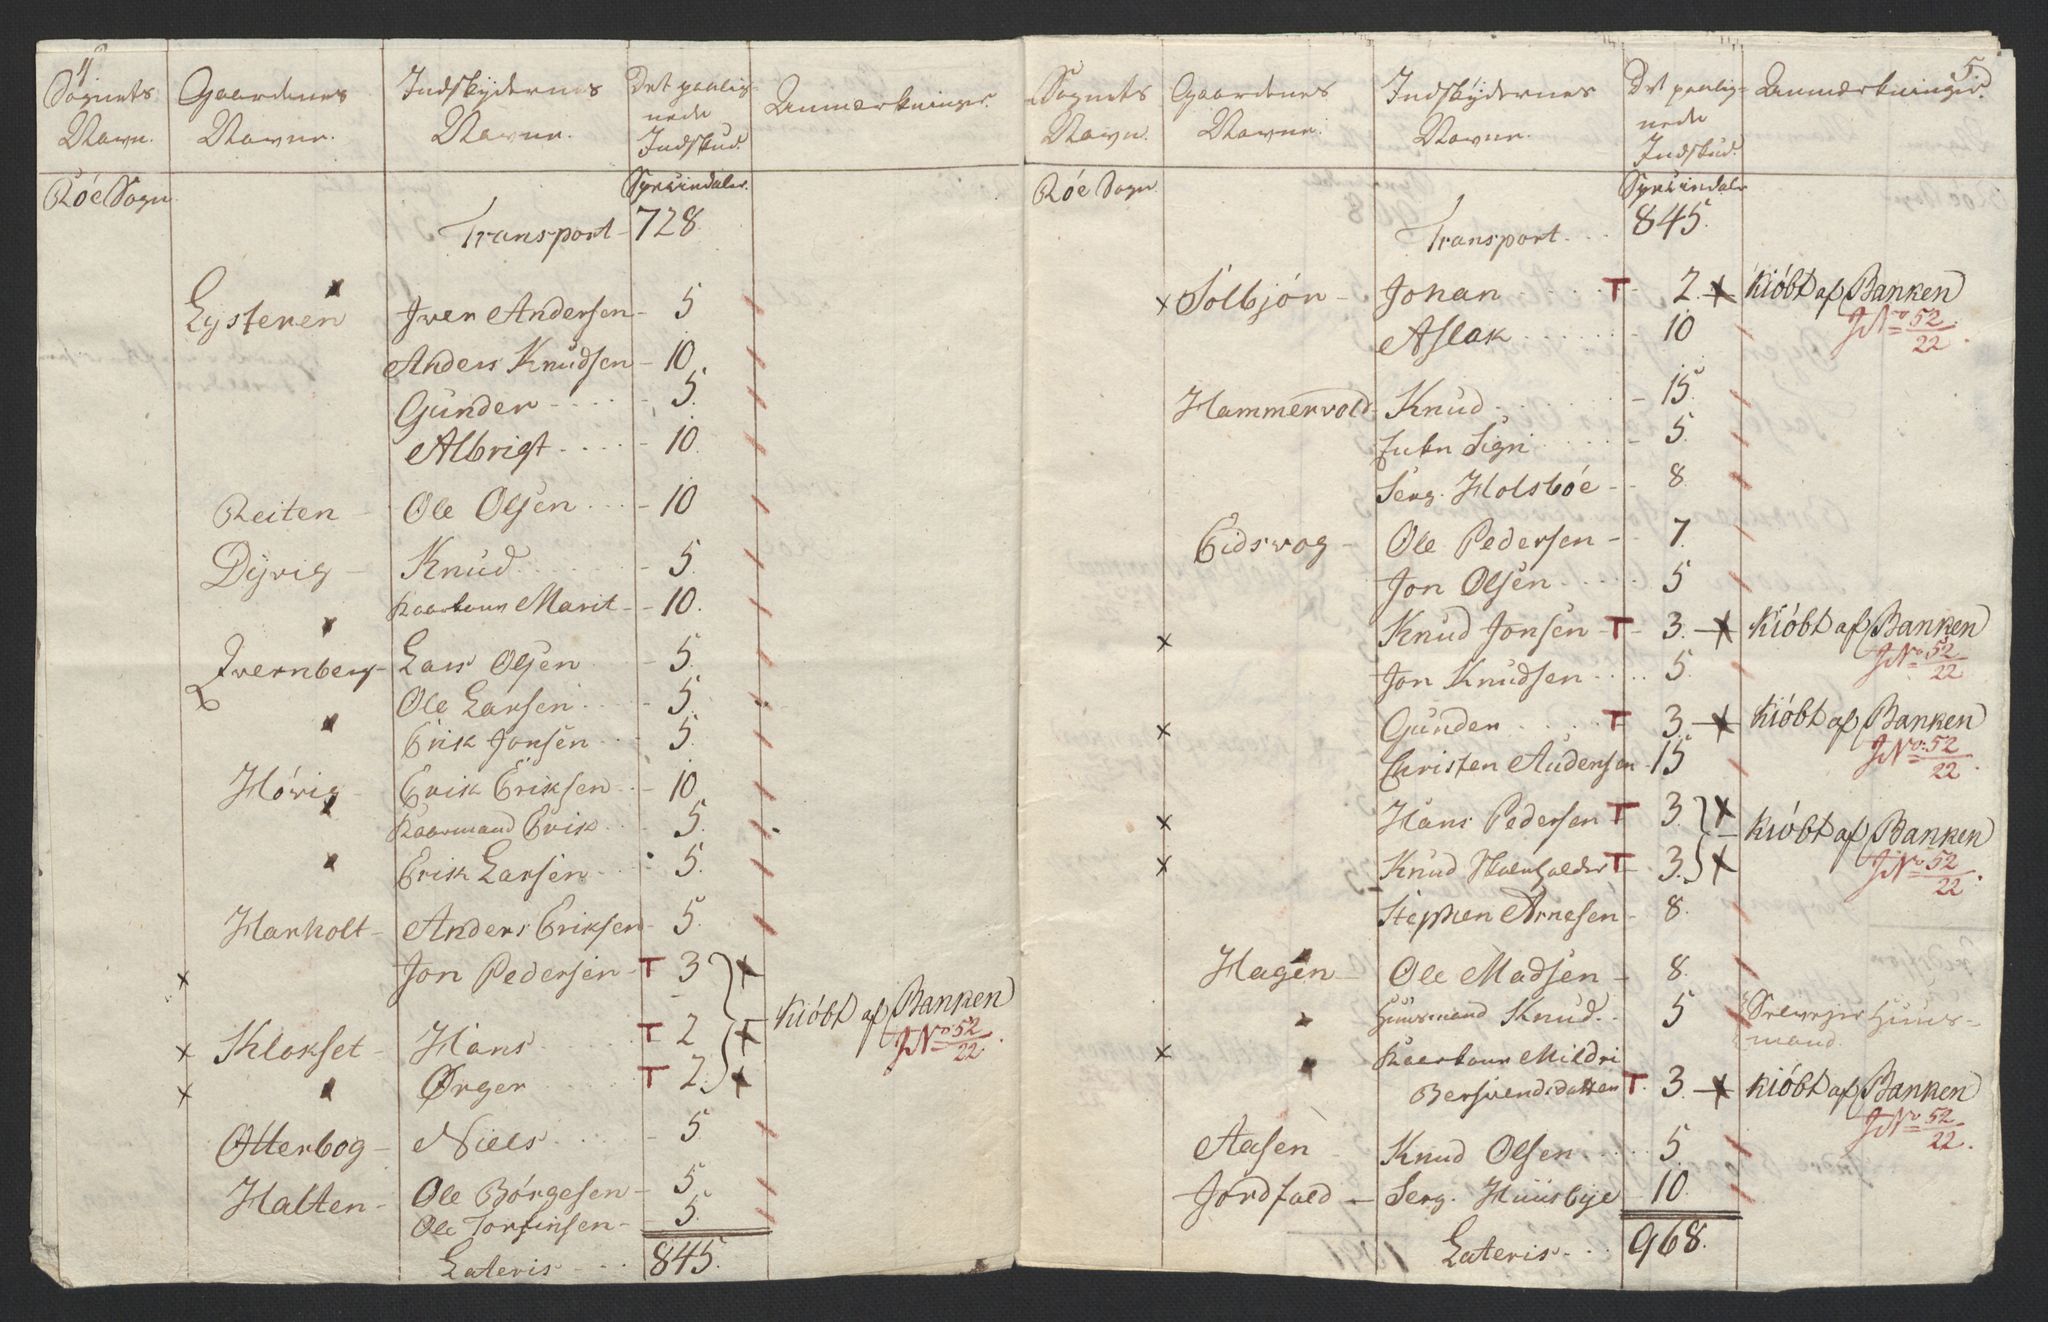 4
Sognets Navn.
Gaardenes Navne.
Indskydernes Navne.
Det paalignede Indskud.
Anmærkninger.
Róe Sogn
Speciedaler.
Transport - 728.
Eysteren Iver Andersen - 5
Anders Knudsen - 10.
Gunder - 5.
Albrigt - 10.
Reiten - Ole Olsen - 10
Dyrvig - Knud - 5
Kaarkone Marit - 10.
Ivernberg - Lars Olsen - 5.
Ole Larsen - 5.
Erik Jonsen - 5.
Hóvig - Erik Eriksen - 10
Kaarmand Erik - 5.
Erik Larsen - 5.
Harholt - Anders Eriksen - 5.
x Jon Pedersen - T 3 x
x Klokset - Hans T 2 x Kióbt af Banken
x Ørger T 2. x JNo 52/22.
Otterbog - Niels - 5
Halten - Ole Bórgesen - 5
Ole Torfinsen - 5.
Lateris - 845.
5.
Sognets Navn.
Gaardenes Navne.
Indskydernes Navne.
Det paalignede Indskud.
Anmærkninger.
Róe Sogn.
Speciedaler
Transport. 845.
x Solbjór - Johan T 2. x Kióbt af Banken
Aslak 10 JNo 52/22.
Hammervold - Knud - 15.
Enke Sigri - 5.
Serg. Holsbóe - 8.
Eidsvog - Ole Pedersen - 7.
Jon Olsen 5
x Knud Jonsen - T 3. x Kióbt af Banken
JNo 52/22
Jon Knudsen 5.
x Gunder T 3. x Kióbt af Banken
JNo 52/22
Christen Andersen - 15
x Hans Pedersen T 3. x Kióbt af Banken
x Knud T 3. x JNo 52/22.
Stephen Arnesen - 8.
Hagen - Ole Madsen - 8.
Huusmand Knud 5 Selvejer Huusmand.
x Kaarkone Mildri
Bersvendsdatter T. 3. x Kióbt af Banken
JNo 52/22.
Aasen - Knud Olsen 5.
Jordfald - Serg. Huusbye 10.
Lateris 968.